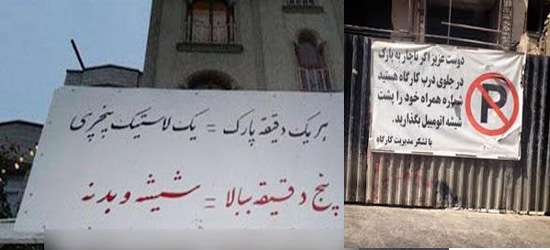 هر یک دقیقه پارک = یک لاستیک پنچری
پنج دقیقه ببالا = شیشه و بدنه
دوست عزیز اگر ناچار به پارک
در جلوی درب کارگاه هستید
شماره همراه خود را پشت
شیشه اتومبیل بگذارید.
با تشکر مدیریت کارگاه
P